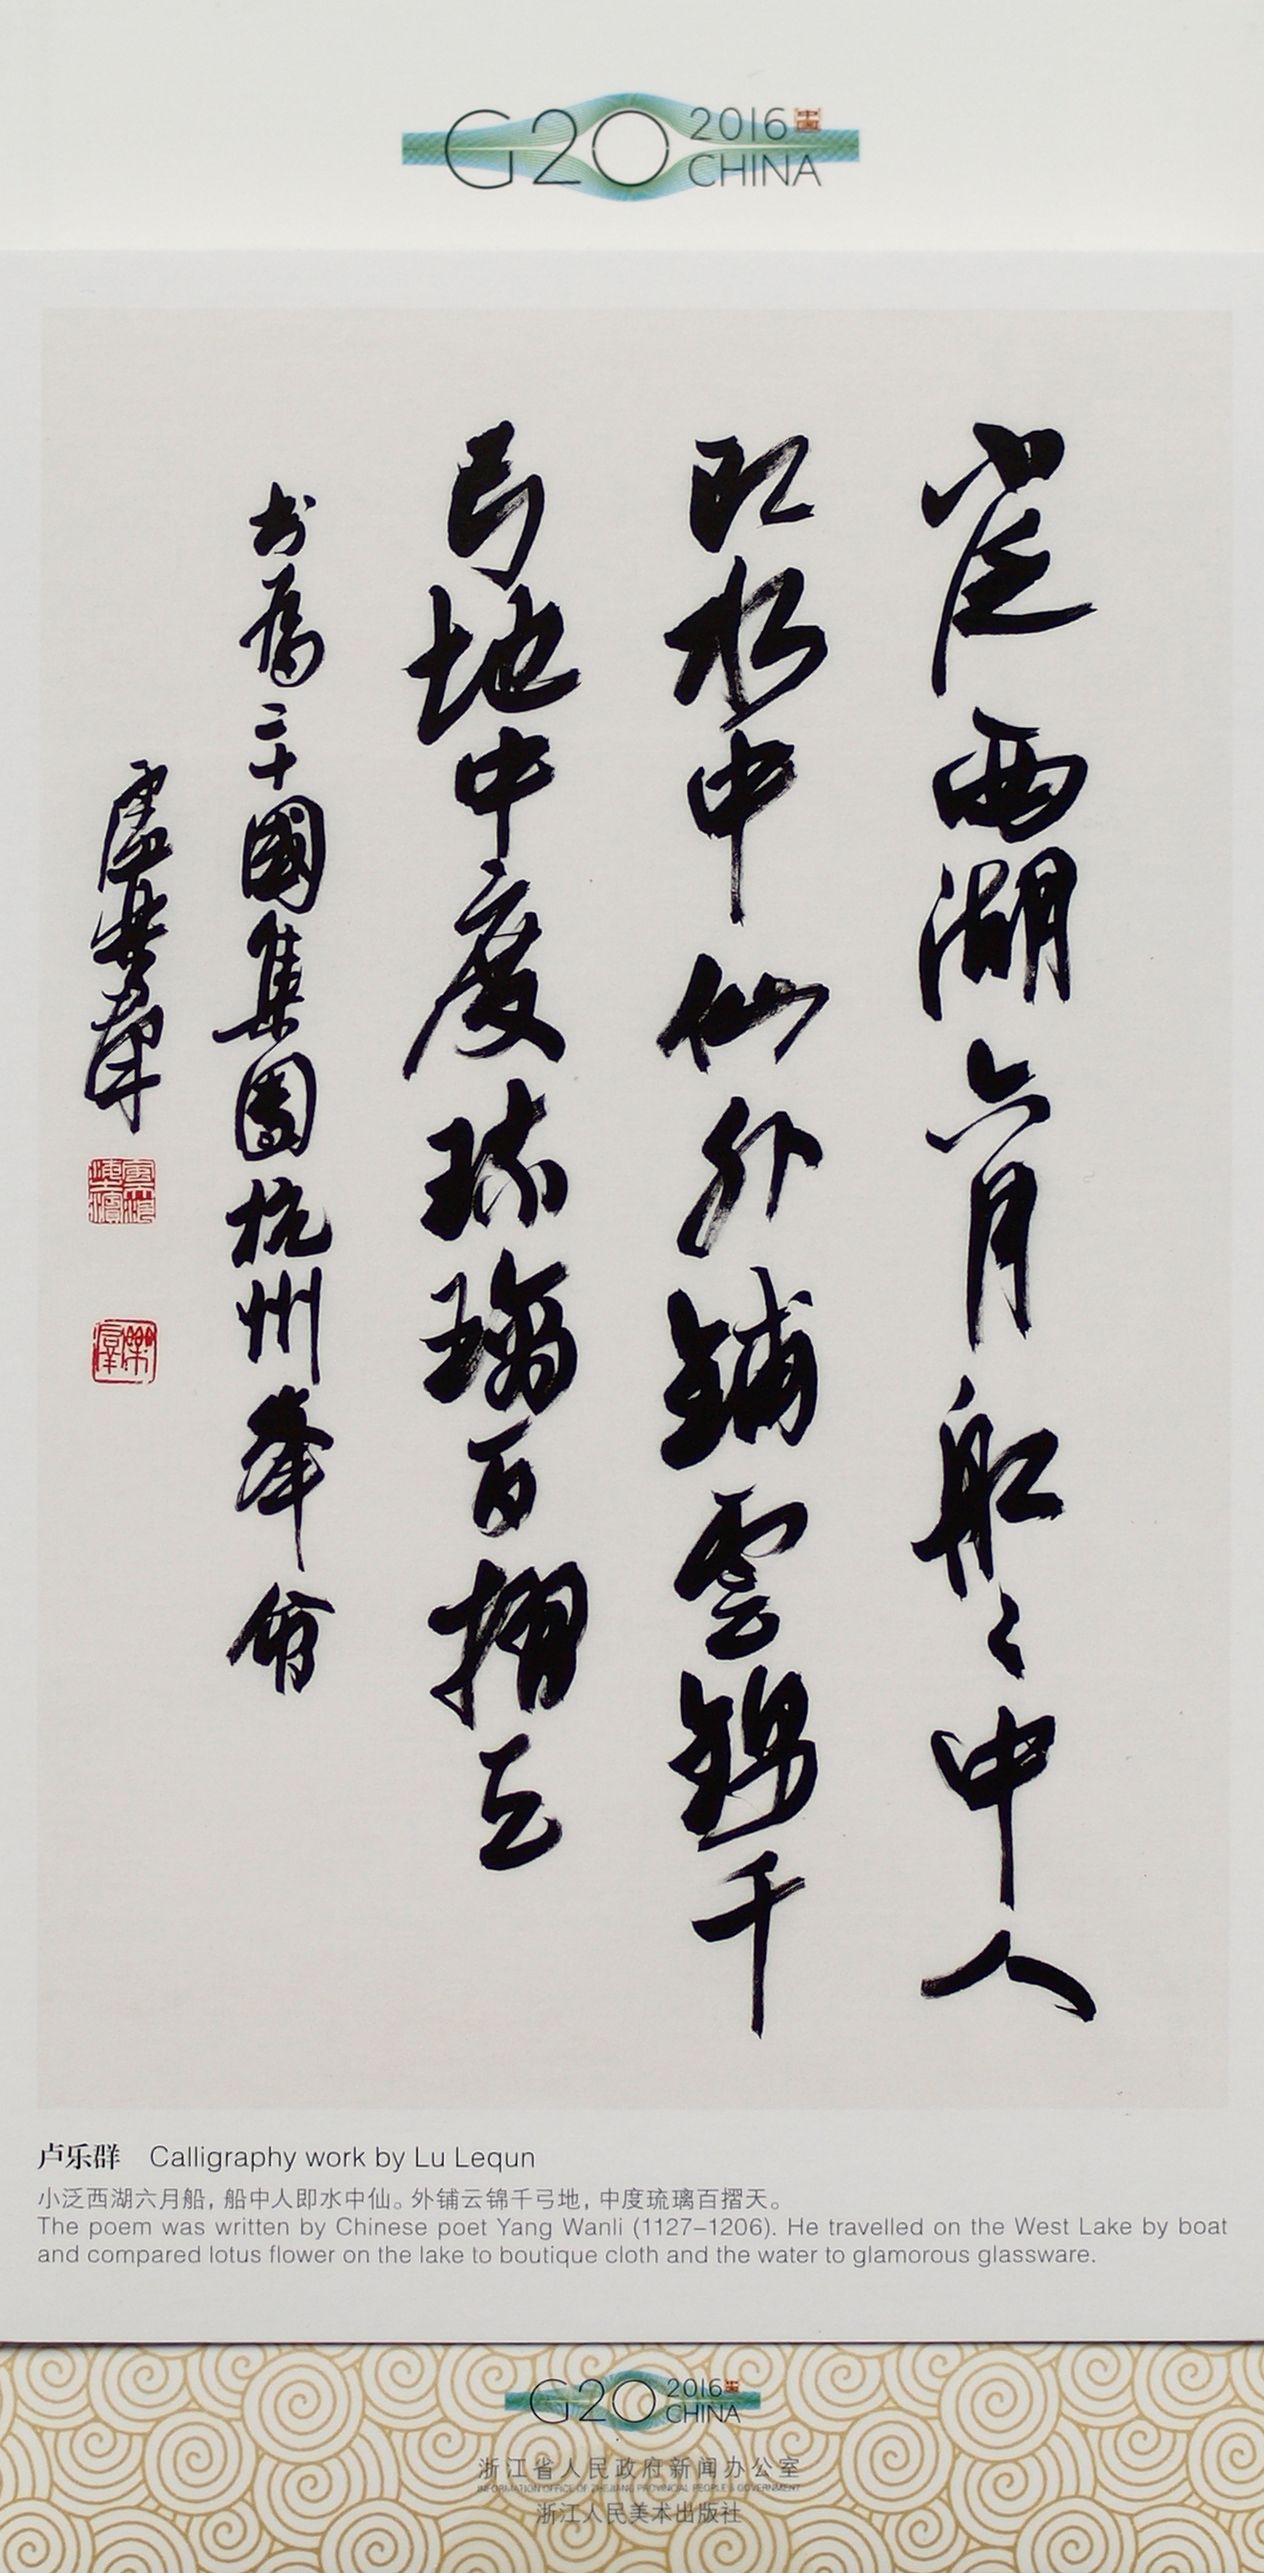 G20 2016 CHINA
小泛西湖六月船々中人
即水中仙外鋪雲錦千
弓地中度琉璃百摺天
书為二十國集團杭州峯會
盧樂群
卢乐群 Calligraphy work by Lu Lequn
小泛西湖六月船，船中人即水中仙。外铺云锦千弓地，中度琉璃百摺天。
The poem was written by Chinese poet Yang Wanli (1127–1206). He travelled on the West Lake by boat
and compared lotus flower on the lake to boutique cloth and the water to glamorous glassware.
G20 2016 CHINA
浙江省人民政府新闻办公室
INFORMATION OFFICE OF ZHEJIANG PROVINCIAL PEOPLE'S GOVERNMENT
浙江人民美术出版社